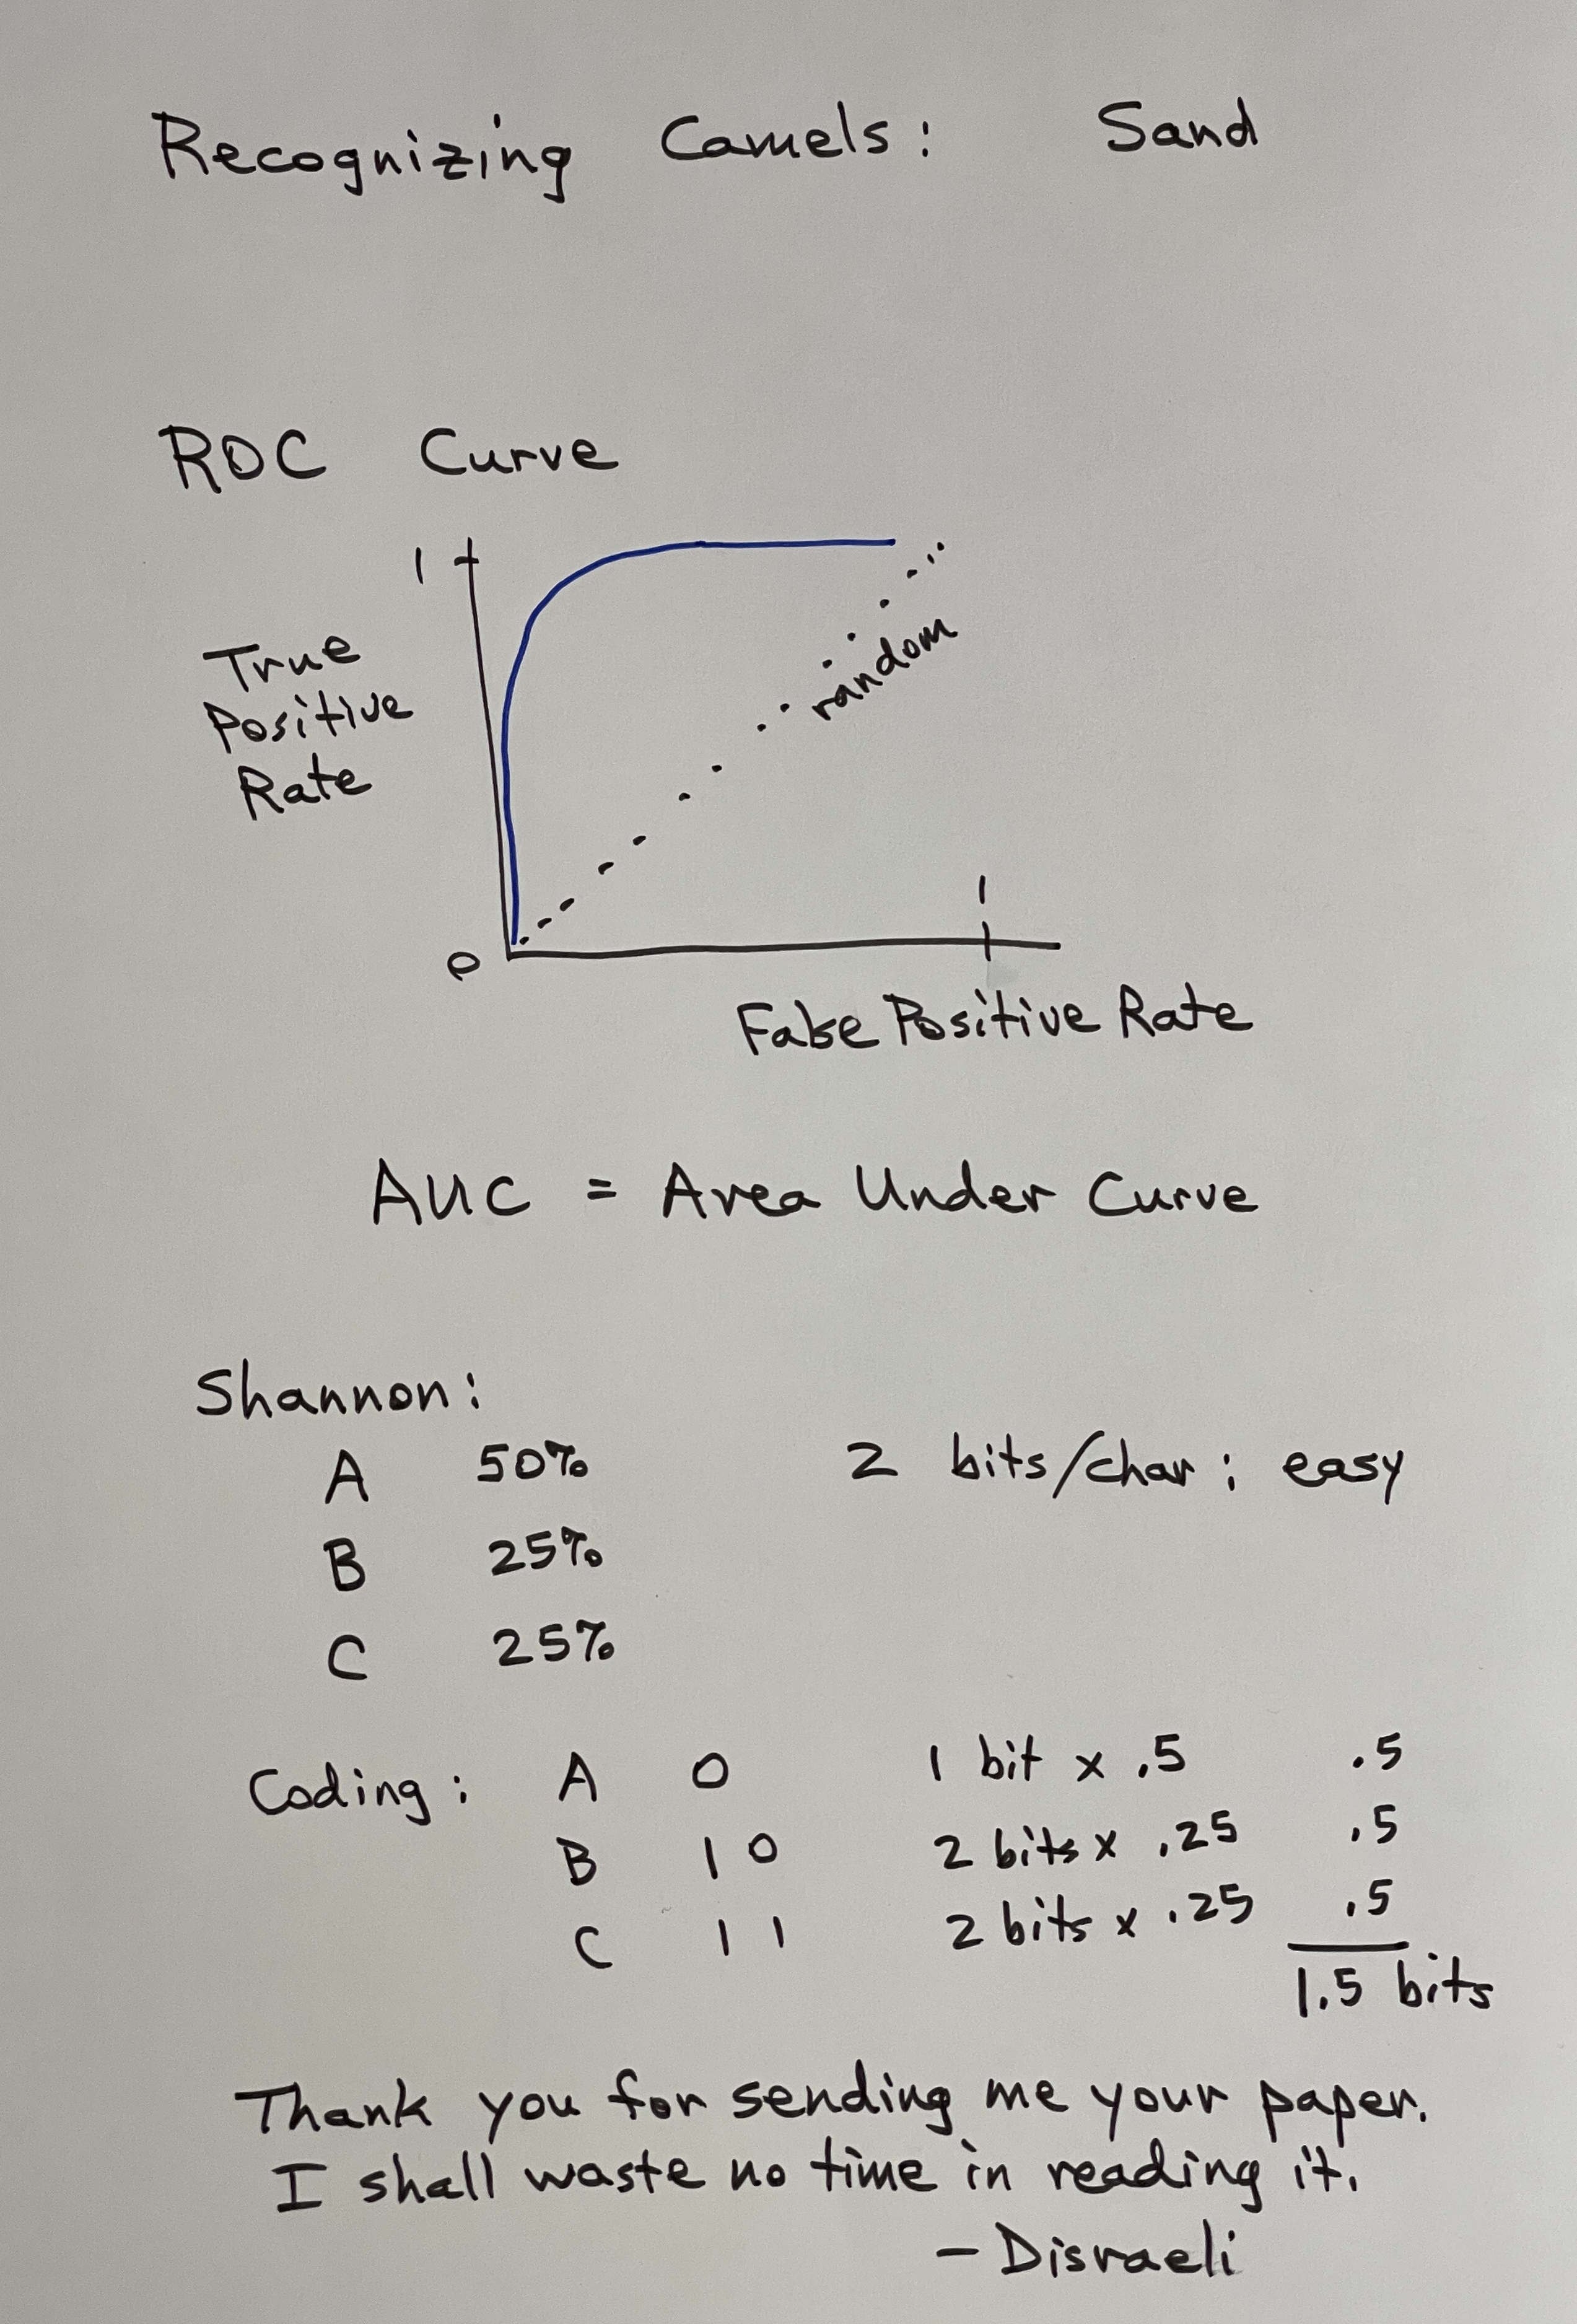 Recognizing Camels: Sand
ROC Curve
1
True
Positive
Rate
random
1
0
False Positive Rate
AUC = Area Under Curve
Shannon:
A 50% 2 bits/char; easy
B 25%
C 25%
Coding: A 0 1 bit x .5 .5
B 10 2 bits x .25 .5
C 11 2 bits x .25 .5
1.5 bits
Thank you for sending me your paper.
I shall waste no time in reading it.
- Disraeli